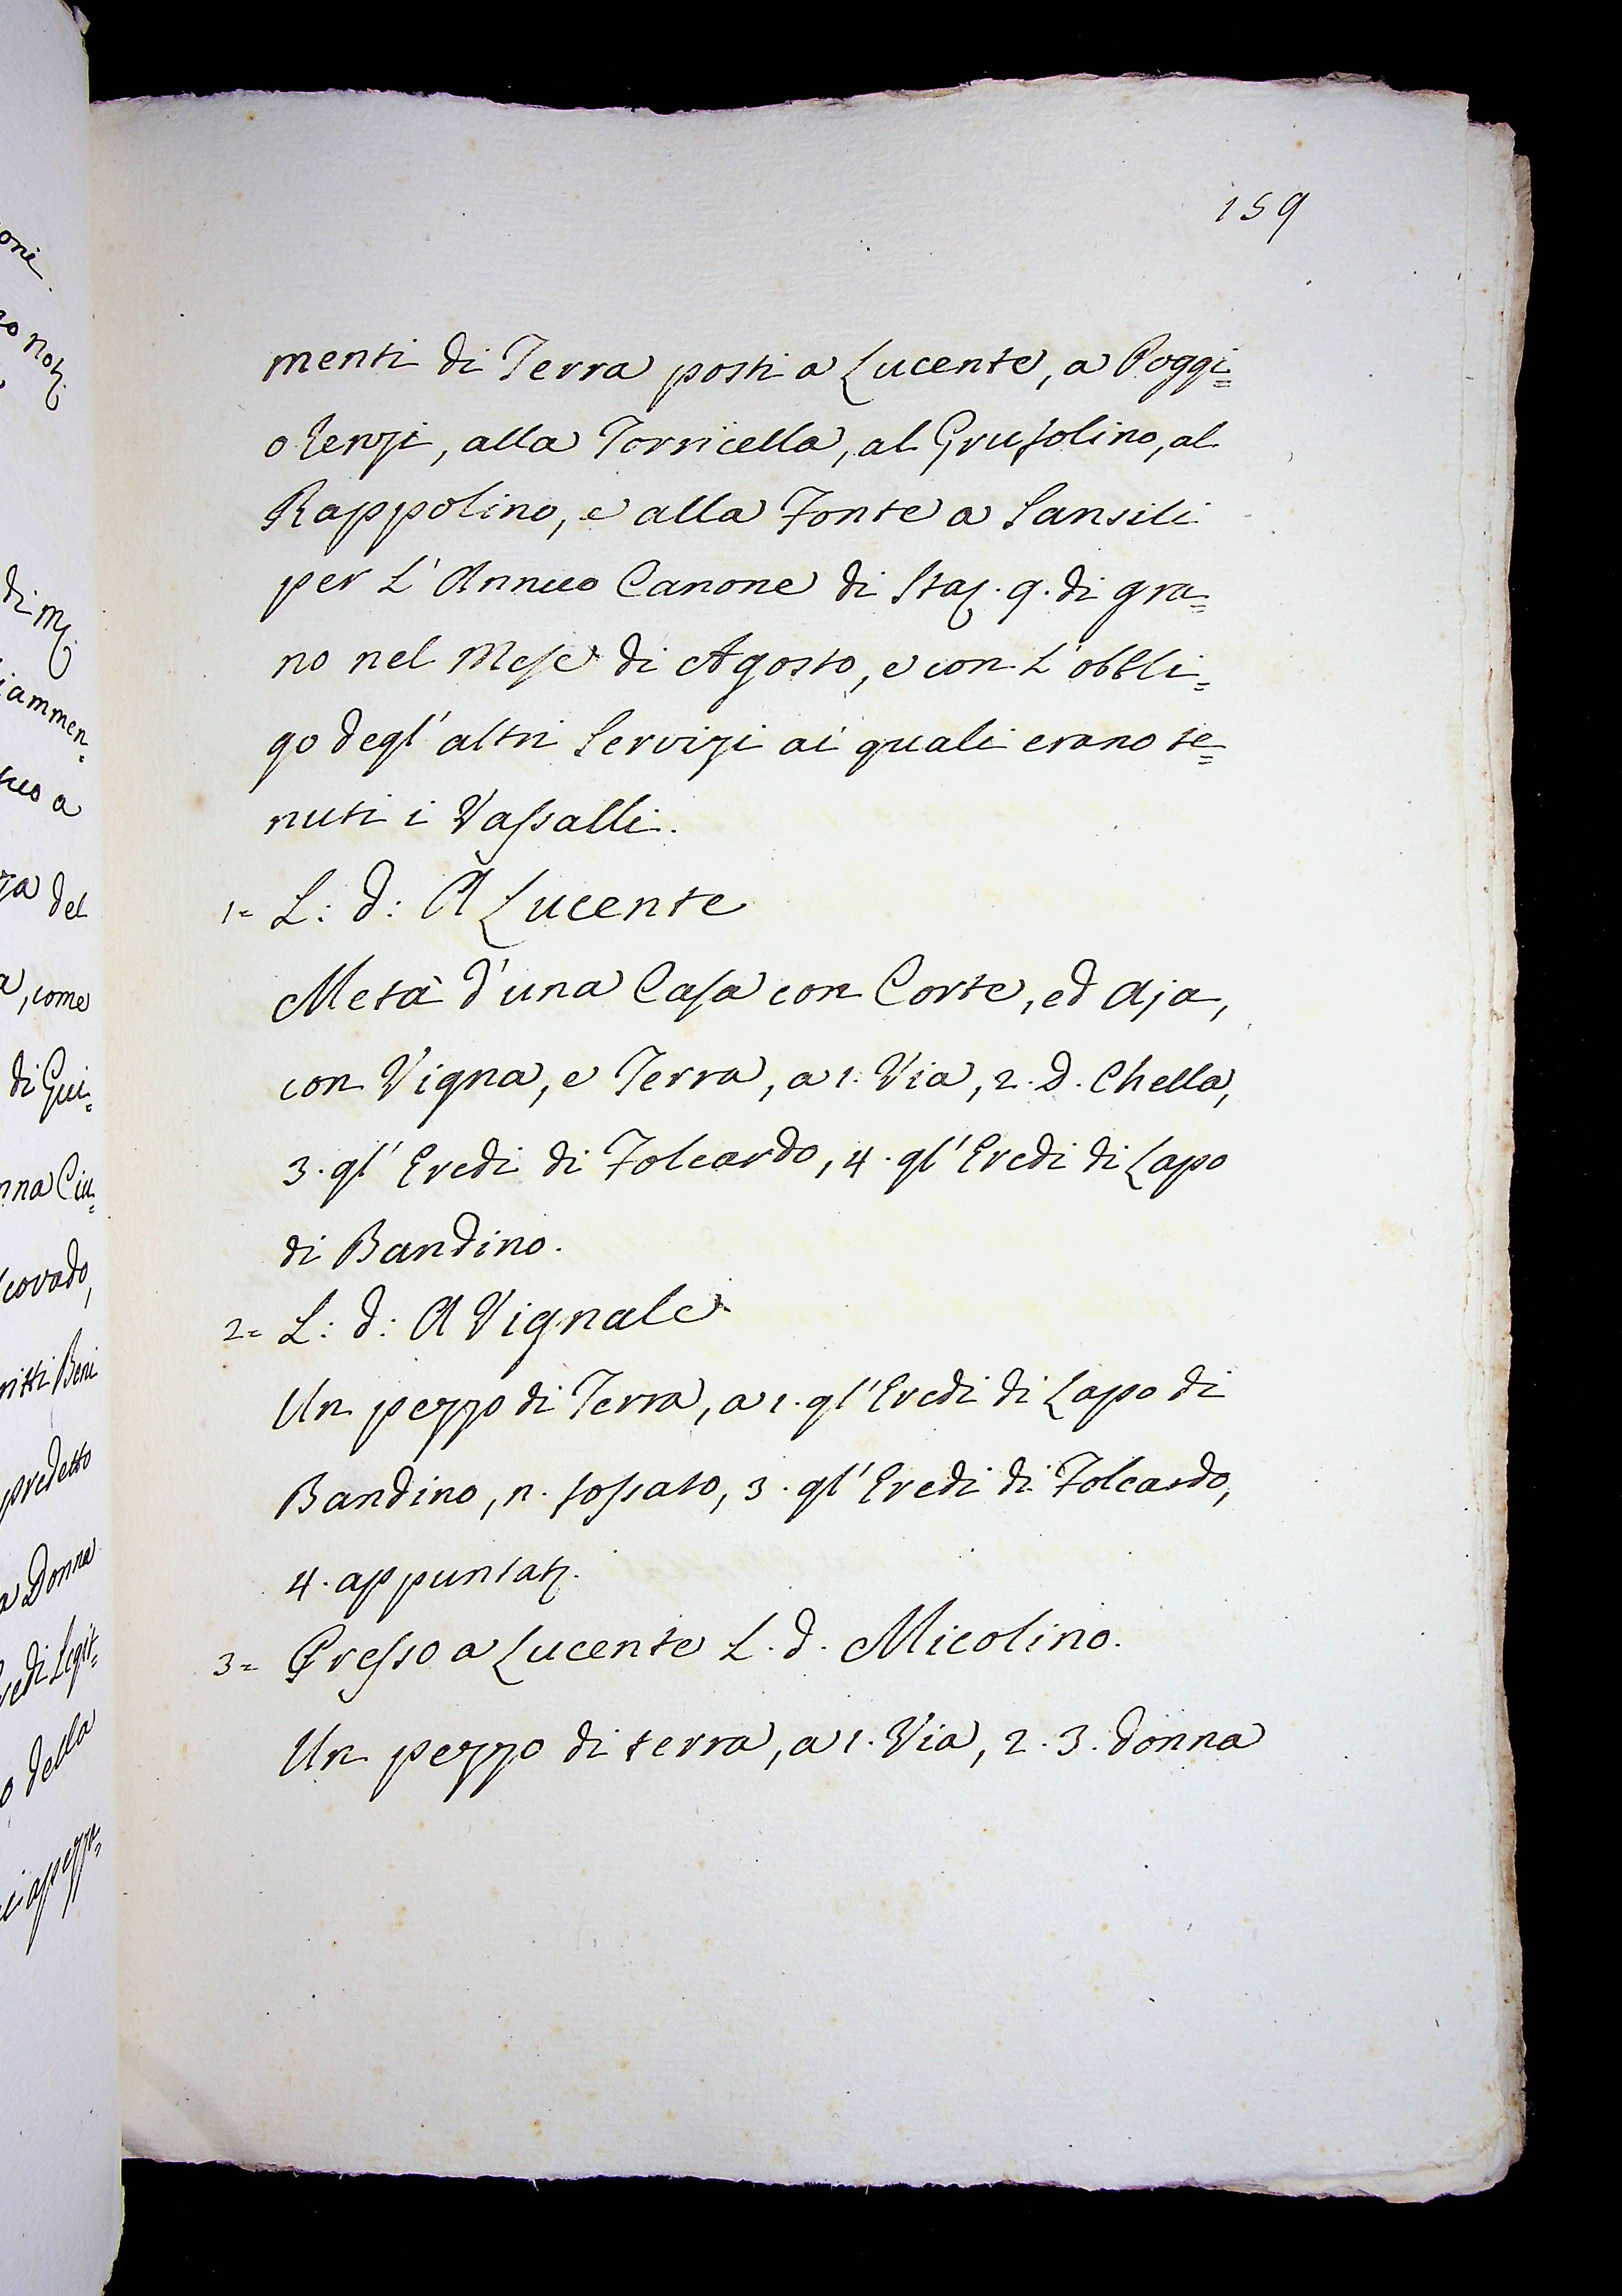 159
menti di Terra posti a Lucente, a Poggi=
o Renzi, alla Torricella, al Grusolino, al
Rappolino, e alla Fonte a Sansili
per L'Annuo Canone di Staj. 9. di gra=
no nel Mese di Agosto, e con L'obbli=
go degl'altri Servizi ai quali erano te=
nuti i Vassalli.
1= L: d: A Lucente
Metà d'una Casa con Corte, ed Aja,
con Vigna, e Terra, a 1. Via, 2. D. Chella,
3. gl'Eredi di Folcardo, 4. gl'Eredi di Lapo
di Bandino.
2= L: d: A Vignale
Un pezzo di Terra, a 1. gl'Eredi di Lapo di
Bandino, n. fossato, 3. gl'Eredi di Folcardo,
4. appuntat.
3= Presso a Lucente L. d. Micolino.
Un pezzo di terra, a 1. Via, 2. 3. donna
one
di M
iammen=
del
a, come
di Gui=
nna Ciu=
covado,
ritti Beni
predetto
a Donna
redi Legit=
o della